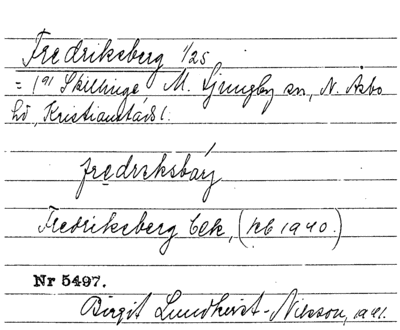 Fredriksberg 1/25
= 1⁹¹ Skillinge M. Ljungby sn, N. Åsbo
hd, Kristianstads l.
fredreksbarj
Fredriksberg bek, (kb 1940.)
Nr 5497.
Birgit Lundkvist-Nilsson, 1941.